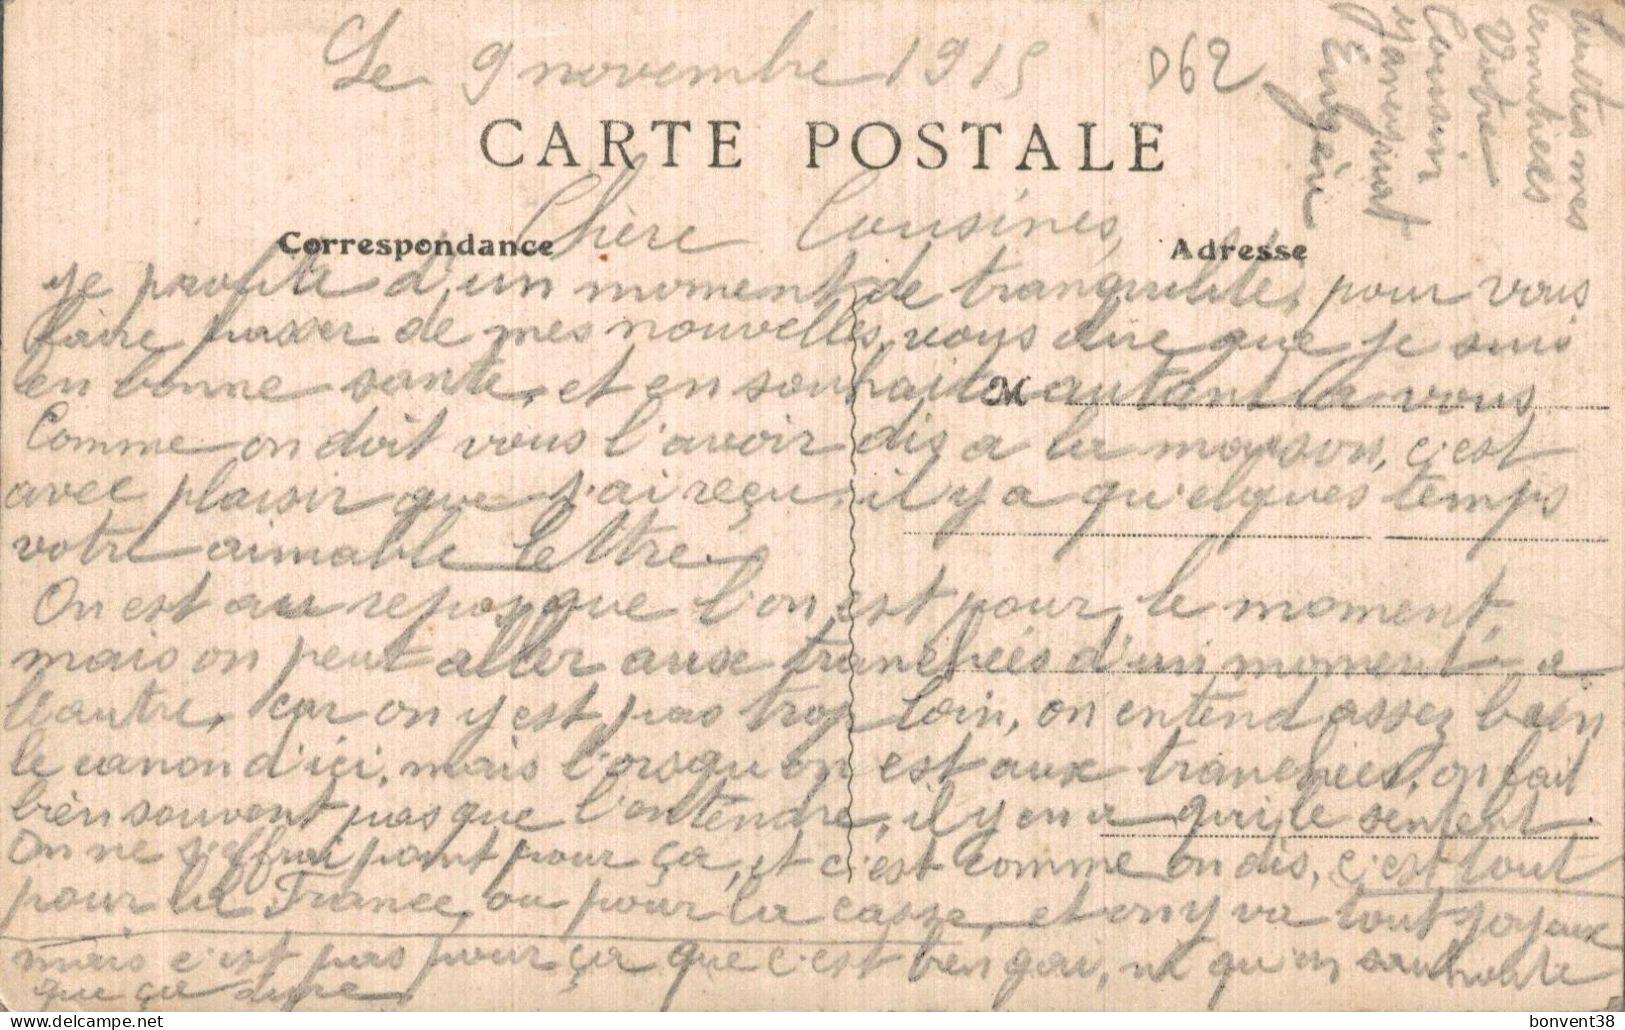 Le 9 novembre 1915
D62
CARTE POSTALE
Correspondance
Adresse
M
Chère Cousines,
je profite d'un moment de tranquilité, pour vous
faire passer de mes nouvelles, vous dire que je suis
en bonne santé, et en souhaite autant a vous
Comme on doit vous l'avoir dis a la maison, c'est
avec plaisir que j'ai reçu, il y a quelques temps
votre aimable lettre.
On est au repos que l'on est pour le moment,
mais on peut aller aux tranchées d'un moment a
l'autre, car on y est pas trop loin, on entend assez bien
le canon d'ici, mais l'orsqu'on est aux tranchées, on fait
bien souvent pas que l'entendre, il y en a qui le sentent
On ne s'effrai point pour ça, et c'est comme on dis, c'est tout
pour la France, ou pour la casse, et on y va tout joyeux
mais c'est pas pour ça que c'est bien gai, ni qu'on souhaite
que ça dure.
toutes mes
amitiées
Votre
Cousin
Eugène
bonvent38